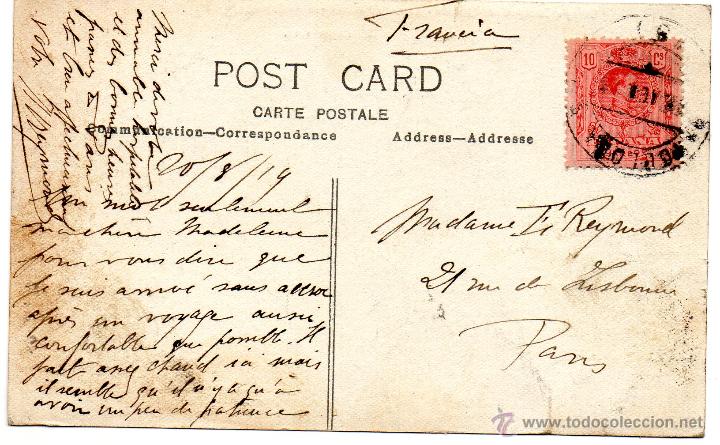 Francia
POST CARD
CARTE POSTALE
Communication—Correspondance
Address—Addresse
10 Cs
20/8/19
Un mot seulement
ma chère Madeleine
pour vous dire que
je suis arrivé sans
après un voyage aussi
confortable que possible. Il
fait assez chaud ici mais
il semble qu'il n'y a qu'à
avoir un peu de patience
Merci de votre
aimable hospitalité
et des bonnes heures
passées
et bien affectueusement
votre
Madame Reymond
21 rue de Lisbonne
Paris
www.todocoleccion.net